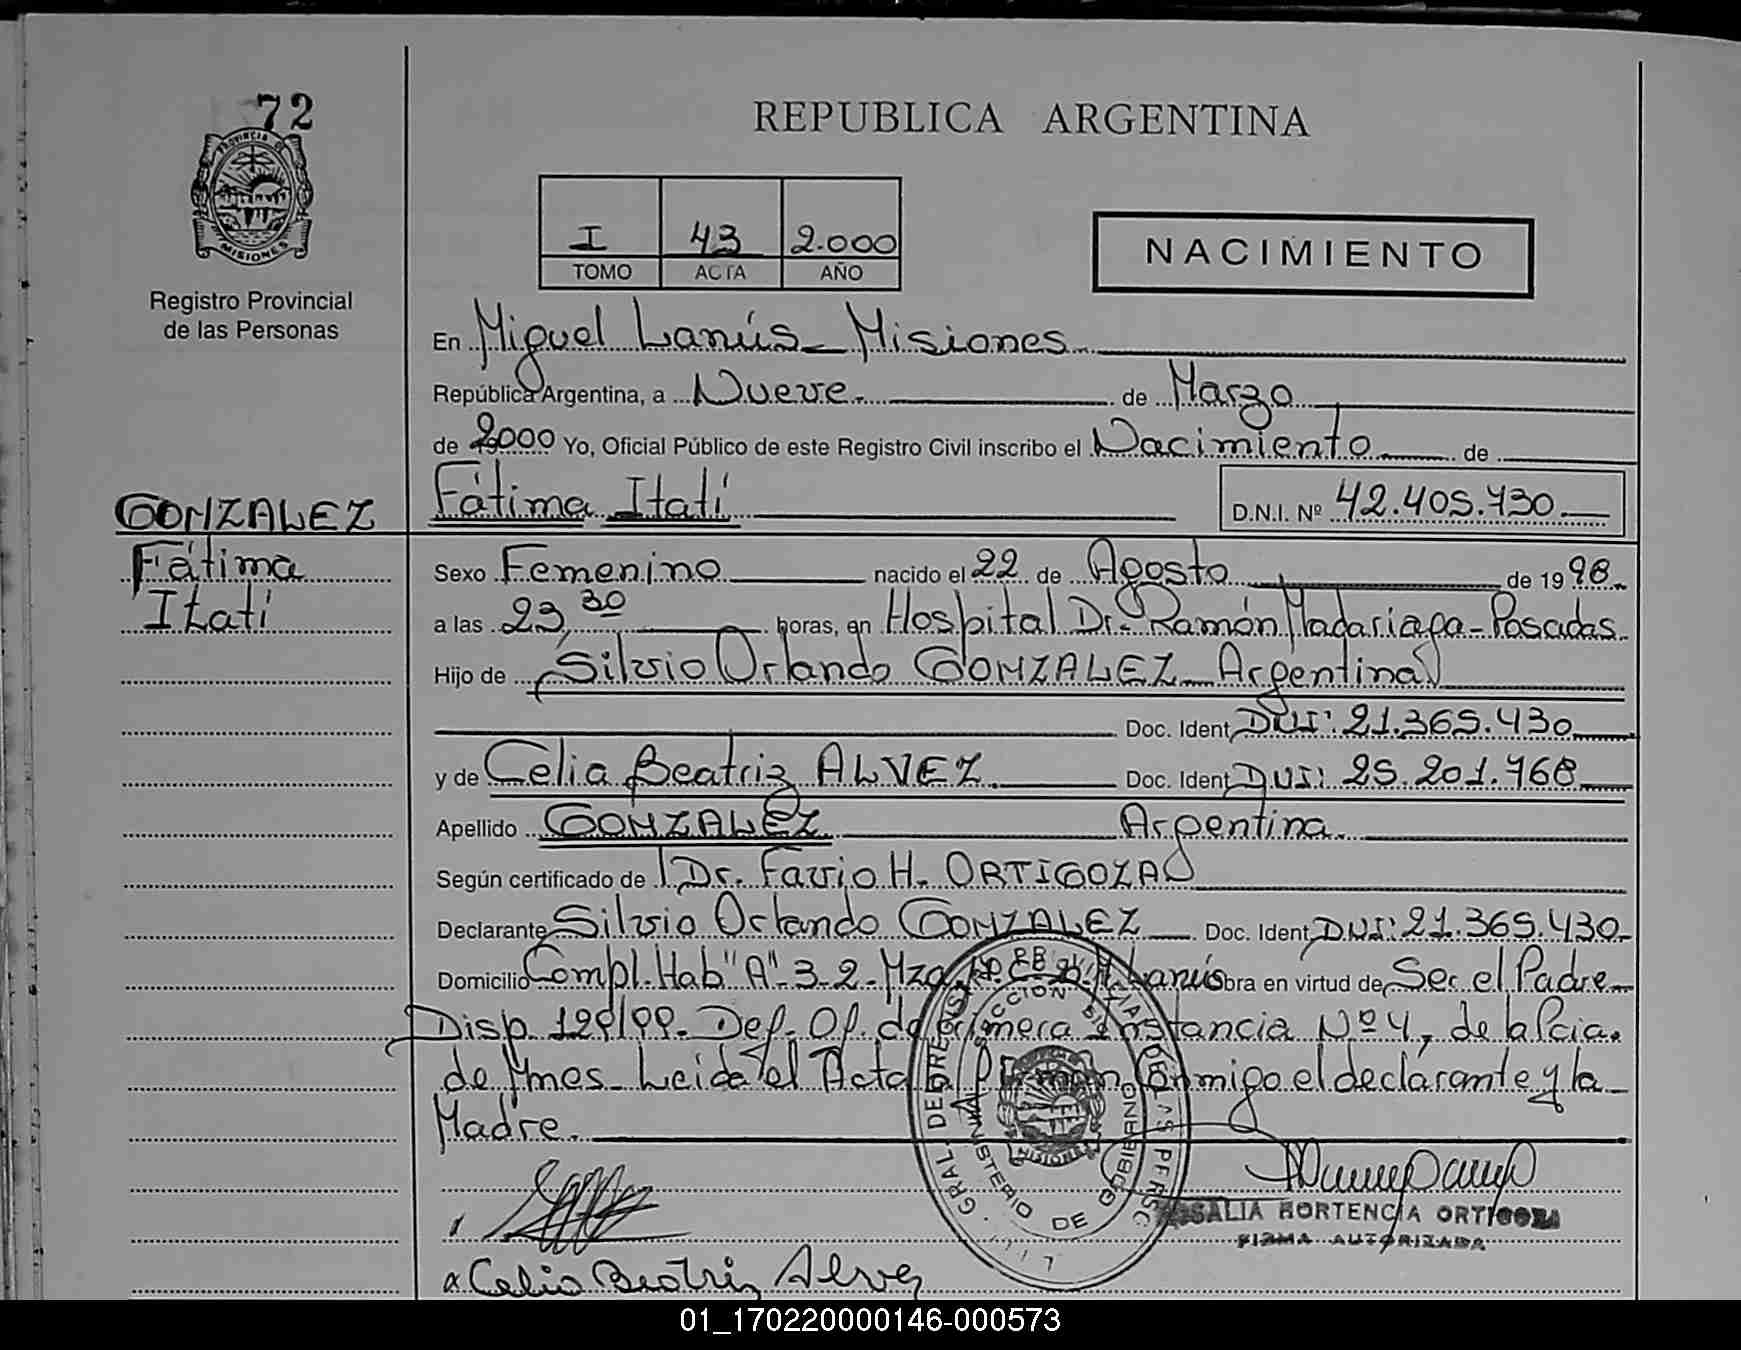 72
PROVINCIA DE
MISIONES
Registro Provincial
de las Personas
REPUBLICA ARGENTINA
I 43 2.000
TOMO ACTA AÑO
NACIMIENTO
En Miguel Lanús - Misiones
República Argentina, a Nueve. de Marzo
de 2000 Yo, Oficial Público de este Registro Civil inscribo el Nacimiento de
GONZALEZ
Fátima Itatí
D.N.I. Nº 42.405.430
Fátima
Itatí
Sexo Femenino nacido el 22 de Agosto de 1998.
a las 23,30 horas, en Hospital Dr. Ramón Madariaga - Posadas.
Hijo de Silvio Orlando GONZALEZ - Argentina
Doc. Ident DNI: 21.365.430
y de Celia Beatriz ALVEZ Doc. Ident DNI: 25.201.468
Apellido GONZALEZ Argentina.
Según certificado de Dr. Favio H. ORTIGOZA
Declarante Silvio Orlando GONZALEZ Doc. Ident DNI: 21.365.430
Domicilio Compl. Hab "A" 3-2- Mza Lanús obra en virtud de Ser el Padre
Disp. 129/99. Def. Of. de Primera Instancia Nº 4, de la Pcia.
de Mnes. Leída el Acta Firman Conmigo el declarante y la
Madre.
ROSALIA HORTENCIA ORTIGOZA
FIRMA AUTORIZADA
x Celia Beatriz Alvez
GRAL. DE REGISTRO PROVINCIAL DE LAS PERSO
MINISTERIO DE GOBIERNO
MISIONES
01_170220000146-000573